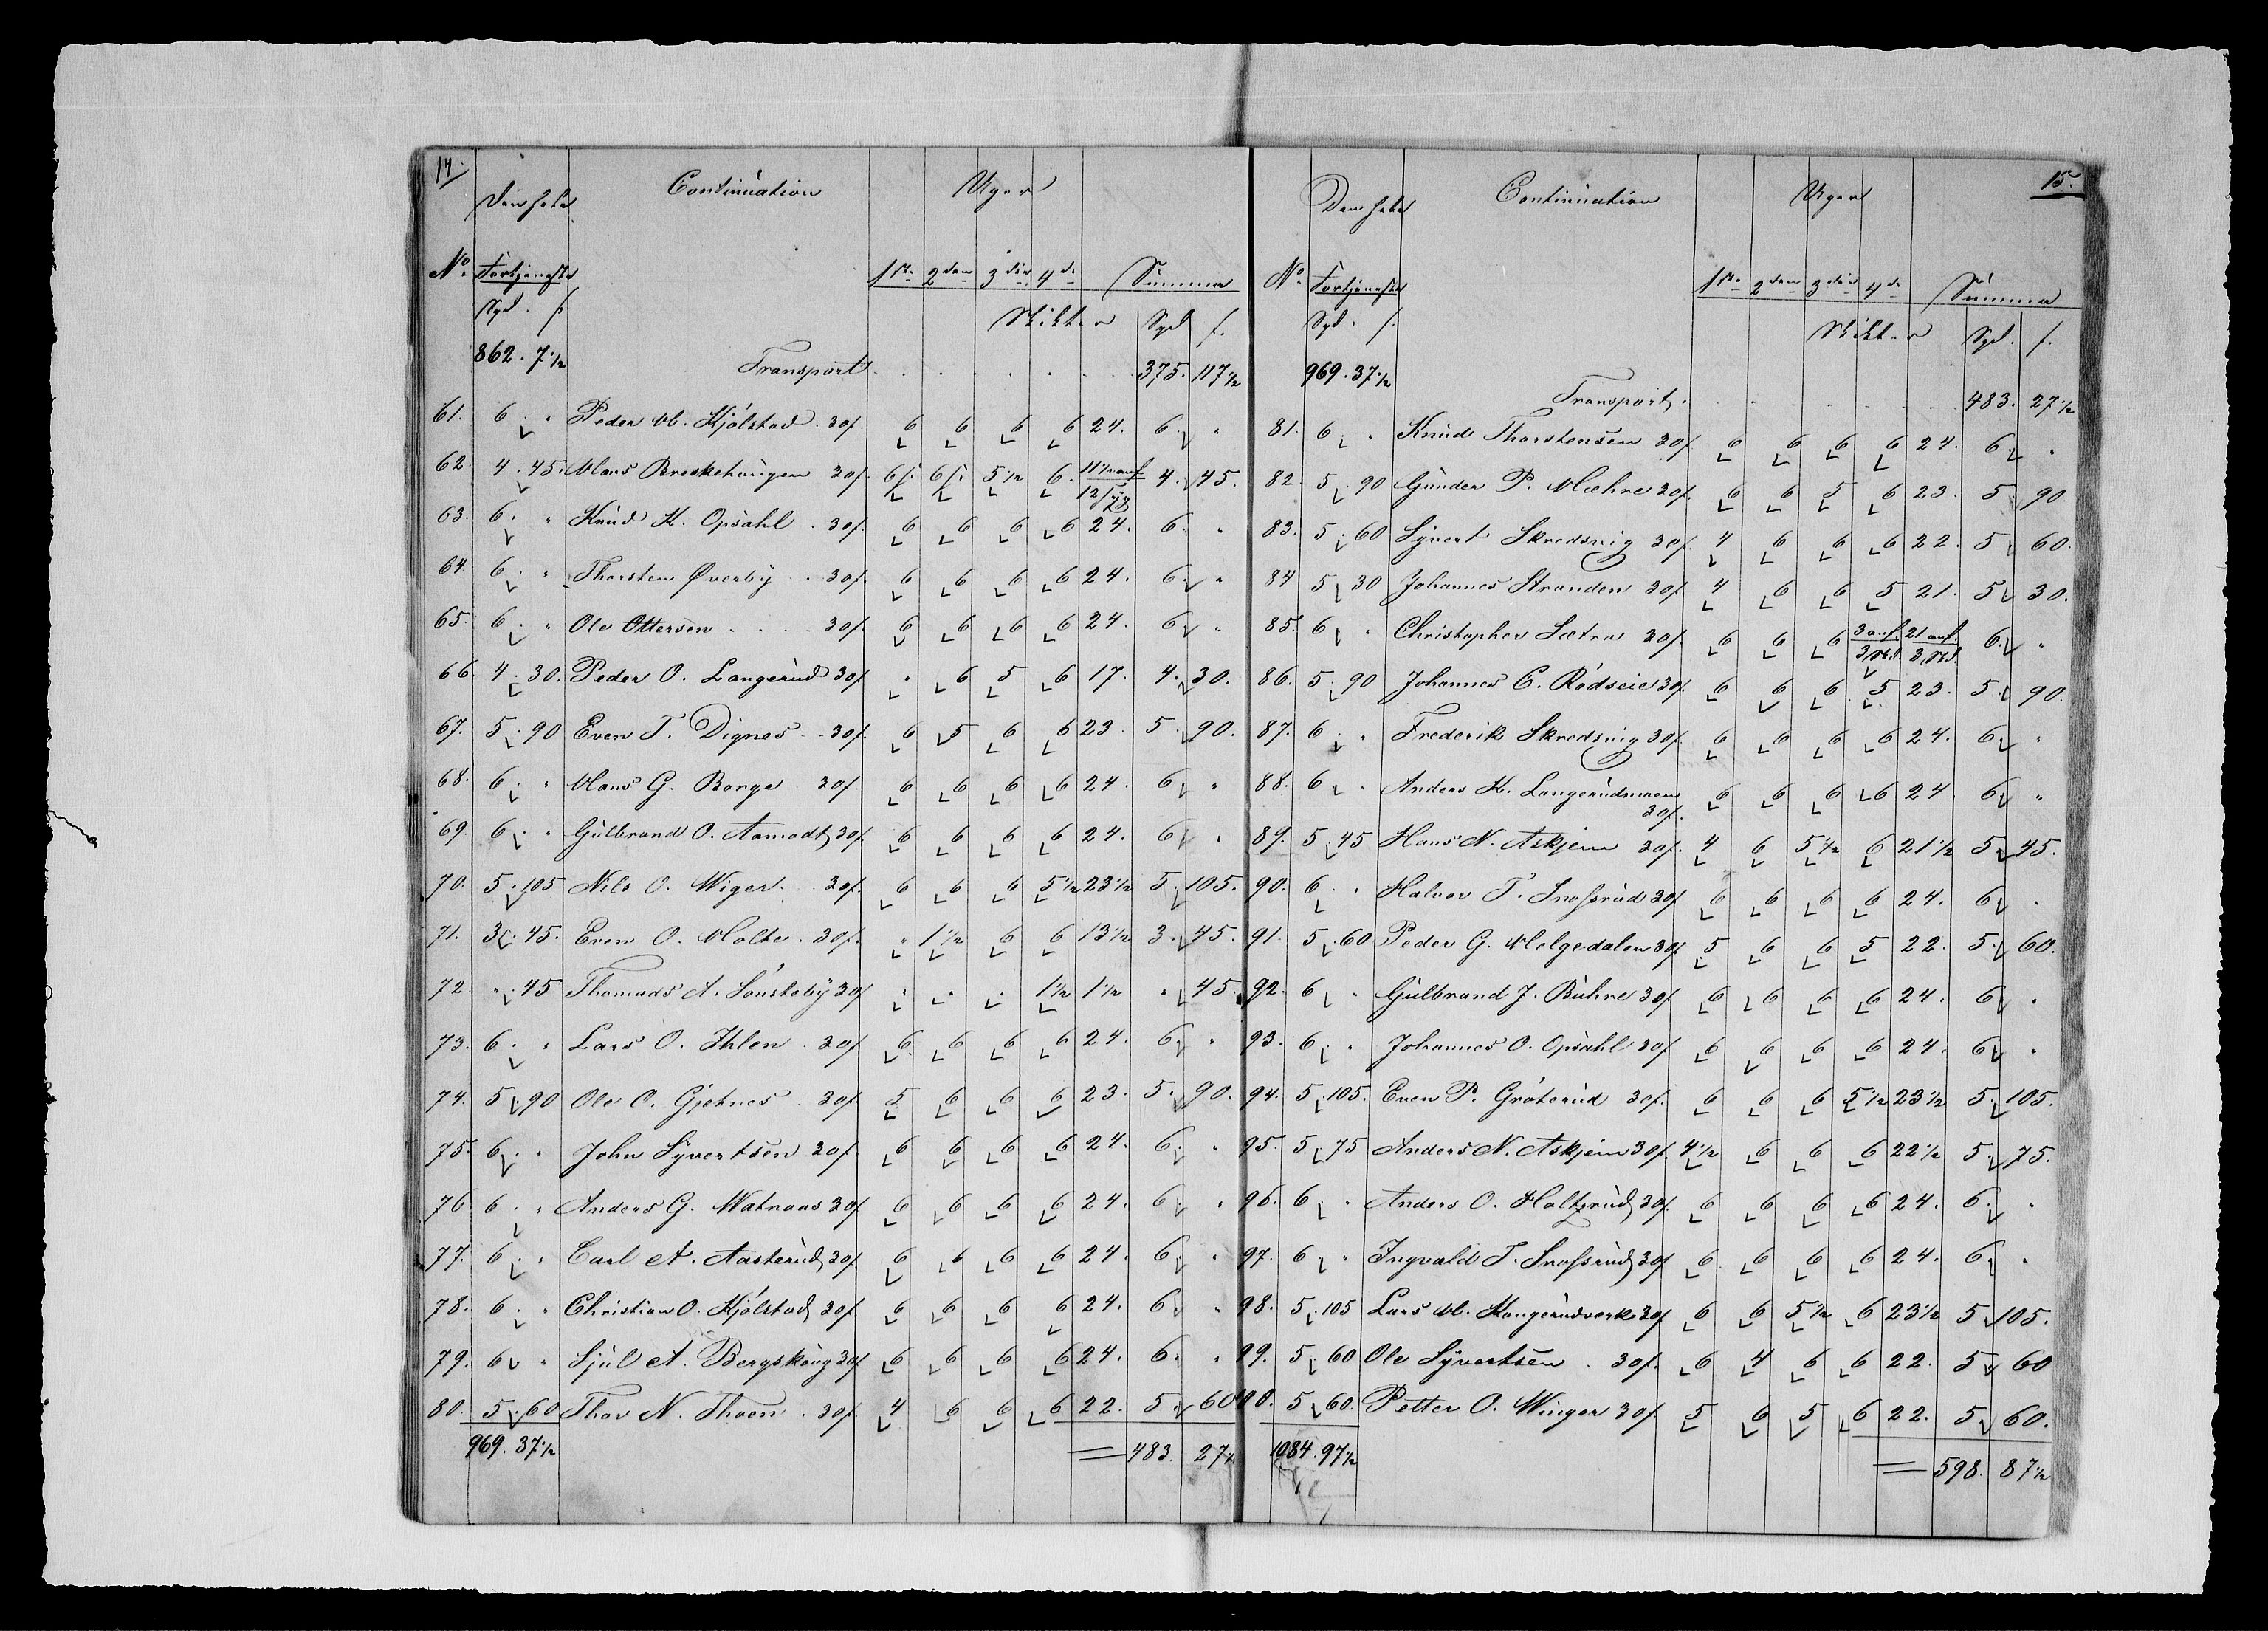 14.
Continuation Uger
Den hele
No. Fortjeneste 1ste 2den 3die 4de Summa
Spd. ſ. Skikter Spd ſ.
862. 7 1/2 Transport . . . . . . 375. 117 1/2
61. 6. " Peder M. Kjölstad. 30ſ. 6 6 6 6 24. 6. "
62. 4. 45. Mons Breskehaugen 30ſ. 6ſ. 6ſ. 5 1/2 6. 11 1/2 4. 45.
63. 6. " Knud K. Opsahl. 30ſ. 6 6 6 6 24. 6. "
64. 6. " Thorsten Øverby . . 30ſ. 6 6 6 6 24. 6. "
65. 6. " Ole Ottersen . . . . 30ſ. 6 6 6 6 24. 6 "
66. 4. 30. Peder O. Langerud 30ſ. " 6 5 6 17. 4. 30.
67. 5. 90 Even T. Dignes . . 30ſ. 6 5 6 6 23 5. 90.
68. 6. " Mons G. Borge . 30ſ. 6 6 6 6 24. 6 "
69. 6. " Gulbrand O. Aamodt 30ſ. 6 6 6 6 24. 6 "
70. 5. 105 Nils O. Wiger. . 30ſ. 6 6 6 5 1/2 23 1/2 5. 105.
71. 3. 45. Even O. Molte. 30ſ. " 1 1/2 6 6 13 1/2 3. 45.
72. ". 45 Thomads A. Sönsteby 30ſ. " " " 1 1/2 1 1/2 " 45.
73. 6. " Lars O. Ihlen . 30ſ. 6 6 6 6 24. 6. "
74. 5. 90 Ole O. Gjethnes . 30ſ. 5 6 6 6 23. 5. 90.
75. 6. " John Syvertsen 30ſ. 6 6 6 6 24. 6. "
76. 6. " Anders G. Watnaas 30ſ. 6 6 6 6 24. 6. "
77. 6. " Carl A. Aasterud 30ſ. 6 6 6 6 24. 6. "
78. 6. " Christian O. Kjölstad 30ſ. 6 6 6 6 24. 6 "
79. 6 " Sjul A. Bergskaug 30ſ. 6 6 6 6 24. 6. "
80. 5. 60 Thor N. Thoen . 30ſ. 4 6 6 6 22. 5. 60
969. 37 1/2 = 483. 27 1/2
15.
Continuation Uger
Den hele
No. Fortjeneste 1ste 2den 3die 4de Summa
Spd. ſ. Skikter Spd. ſ.
969. 37 1/2 Transport . . . . . . 483. 27 1/2
81. 6. " Knud Thorstensen 30ſ. 6 6 6 6 24. 6. "
82. 5. 90 Gunder P. Mæhre 30ſ. 6 6 5 6 23. 5. 90.
83. 5. 60 Syvert Skredsvig 30ſ. 4 6 6 6 22. 5. 60.
84 5. 30 Johannes Stranden 30ſ. 4 6 6 5 21. 5 30.
85. 6. " Christopher Sætra 30ſ. 6 6 6 3 21 6. "
86. 5. 90 Johannes C. Rödseie 30ſ. 6 6 6 5 23. 5. 90.
87. 6. " Frederik Skredsvig 30ſ. 6 6 6 6 24. 6 "
88. 6 " Anders H. Langerudmoen 6 6 6 6 24. 6 "
30ſ.
89. 5. 45 Hans N. Askjem 30ſ. 4 6 5 1/2 6 21 1/2 5. 45.
90. 6. " Halvor T. Snofsrud 30ſ 6 6 6 6 24. 6 "
91. 5. 60 Peder G. Melgedalen 30ſ. 5 6 6 5 22. 5. 60.
92. 6 " Gulbrand J. Buhre 30ſ 6 6 6 6 24. 6 "
93. 6. " Johannes O. Opsahl 30ſ 6 6 6 6 24. 6 "
94. 5. 105. Even P. Gröterud 30ſ. 6 6 6 5 1/2 23 1/2 5. 105.
95. 5. 75 Anders N. Askjem 30ſ. 4 1/2 6 6 6 22 1/2 5. 75.
96. 6 " Anders O. Holtsrud 30ſ. 6 6 6 6 24. 6. "
97. 6 " Ingvald T. Snofsrud 30ſ 6 6 6 6 24. 6 "
98. 5. 105 Lars M. Kongerudverk 30ſ 6 6 5 1/2 6 23 1/2 5. 105.
99. 5. 60 Ole Syvertsen . 30ſ. 6 4 6 6 22. 5. 60
100. 5. 60. Petter O. Winger 30ſ. 5 6 5 6 22. 5. 60.
1084. 97 1/2 = 598. 87 1/2